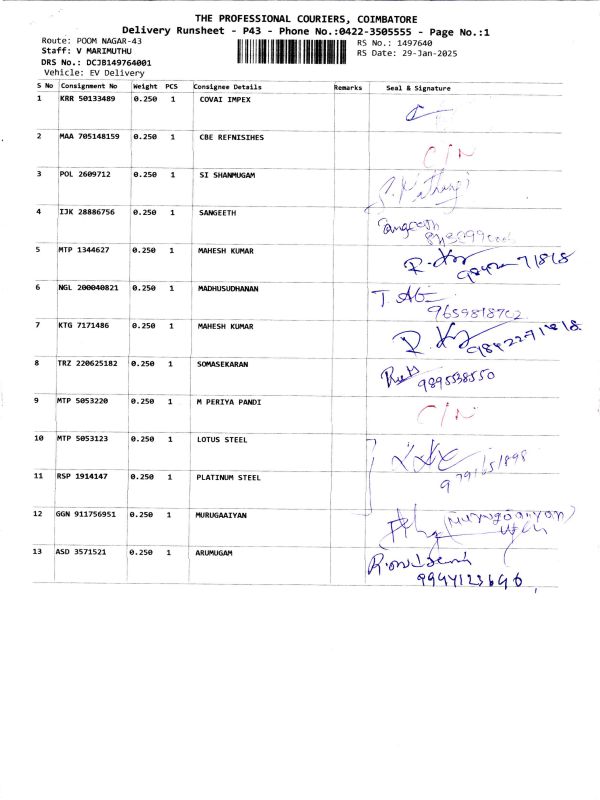 THE PROFESSIONAL COURIERS, COIMBATORE
Delivery Runsheet - P43 - Phone No.:0422-3505555 - Page No.:1
Route: POOM NAGAR-43
Staff: V MARIMUTHU
DRS No.: DCJB149764001
Vehicle: EV Delivery
RS No.: 1497640
RS Date: 29-Jan-2025
S No Consignment No Weight PCS Consignee Details Remarks Seal & Signature
1 KRR 50133489 0.250 1 COVAI IMPEX
2 MAA 705148159 0.250 1 CBE REFNISIHES C/N
3 POL 2609712 0.250 1 SI SHANMUGAM
4 IJK 28886756 0.250 1 SANGEETH Sangeeth
5 MTP 1344627 0.250 1 MAHESH KUMAR
6 NGL 200040821 0.250 1 MADHUSUDHANAN
9659818702
7 KTG 7171486 0.250 1 MAHESH KUMAR
8 TRZ 220625182 0.250 1 SOMASEKARAN 9895538550
9 MTP 5053220 0.250 1 M PERIYA PANDI C/N
10 MTP 5053123 0.250 1 LOTUS STEEL
9791651898
11 RSP 1914147 0.250 1 PLATINUM STEEL
12 GGN 911756951 0.250 1 MURUGAAIYAN (Murugaaiyan)
13 ASD 3571521 0.250 1 ARUMUGAM
9994123696